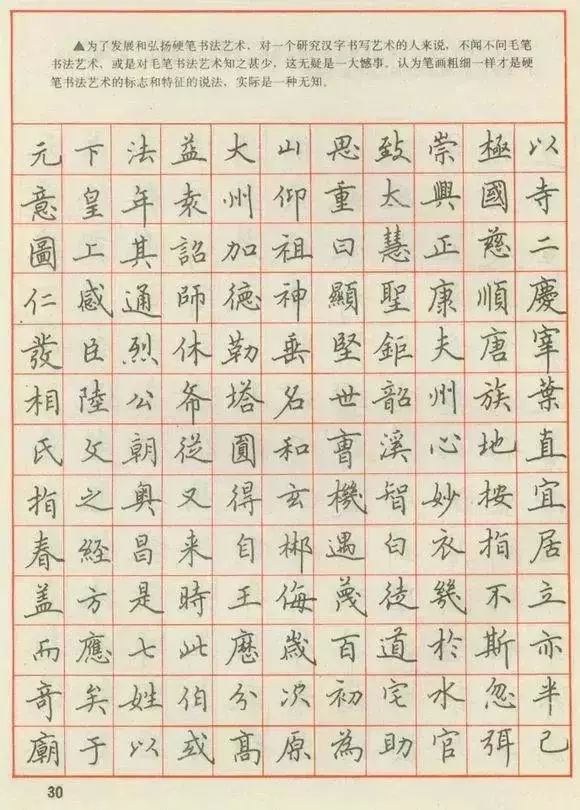 ▲为了发展和弘扬硬笔书法艺术，对一个研究汉字书写艺术的人来说，不闻不问毛笔
书法艺术，或是对毛笔书法艺术知之甚少，这无疑是一大憾事。认为笔画粗细一样才是硬
笔书法艺术的标志和特征的说法，实际是一种无知。
以寺二慶宰葉直宜居立亦半已
極國慈順唐族地按指不斯忽弭
崇興正康夫州心妙衣幾於水官
致太慧聖鉅韶溪智白徒道宅助
思重曰顯堅世曹機遇蔑百初為
山仰祖神垂名和玄郴侮歲次原
大州加德勒塔圓得自王歷分高
益袁詔師休斧從又来時此伯或
法年其通烈公朝奧昌是七姓以
下皇上感臣陸文之經方應矣于
元意圖仁發相氏指春盖而奇廟
30